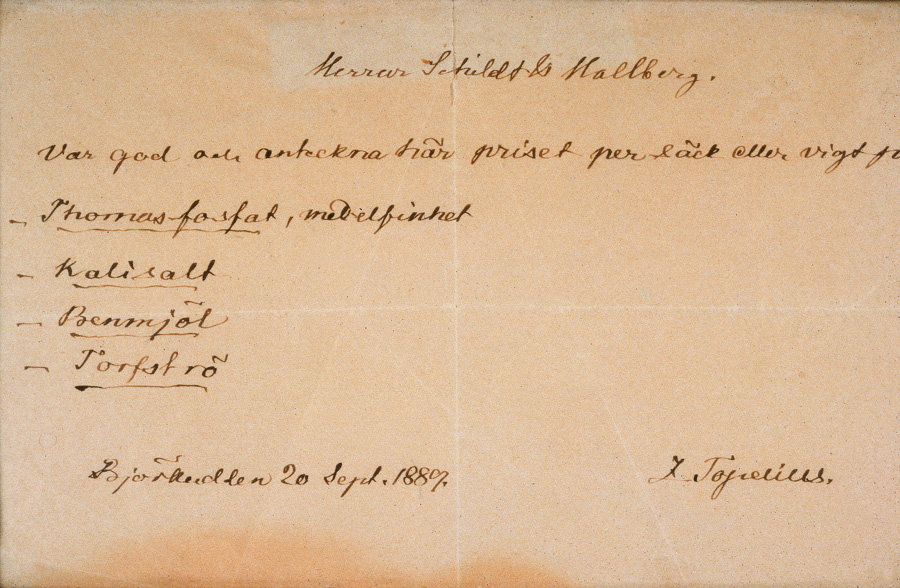 Herrar Schildt & Hallberg.
Var god och anteckna här priset per säck eller vigt
- Thomasfosfat, medelfinhet
- Kalisalt
- Benmjöl
- Torfströ
Björkudden 20 Sept. 1889.
Z. Topelius.